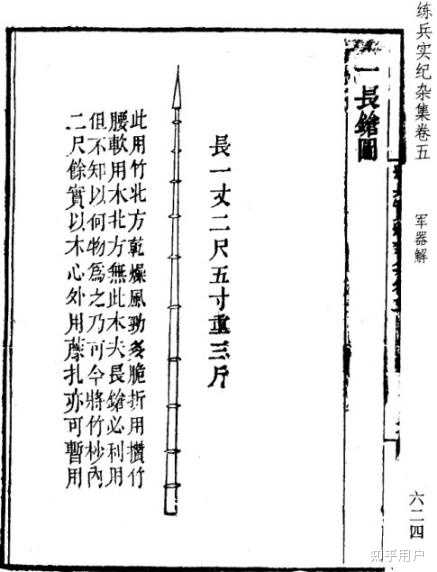 练兵实纪杂集卷五
军器解
六二四
一長鎗圖
長一丈二尺五寸重三斤
此用竹北方乾燥風勁多脆折用攢竹
腰軟用木北方無此木夫長鎗必利用
但不知以何物爲之乃可今將竹杪內
二尺餘實以木心外用藤扎亦可暫用
知乎用户